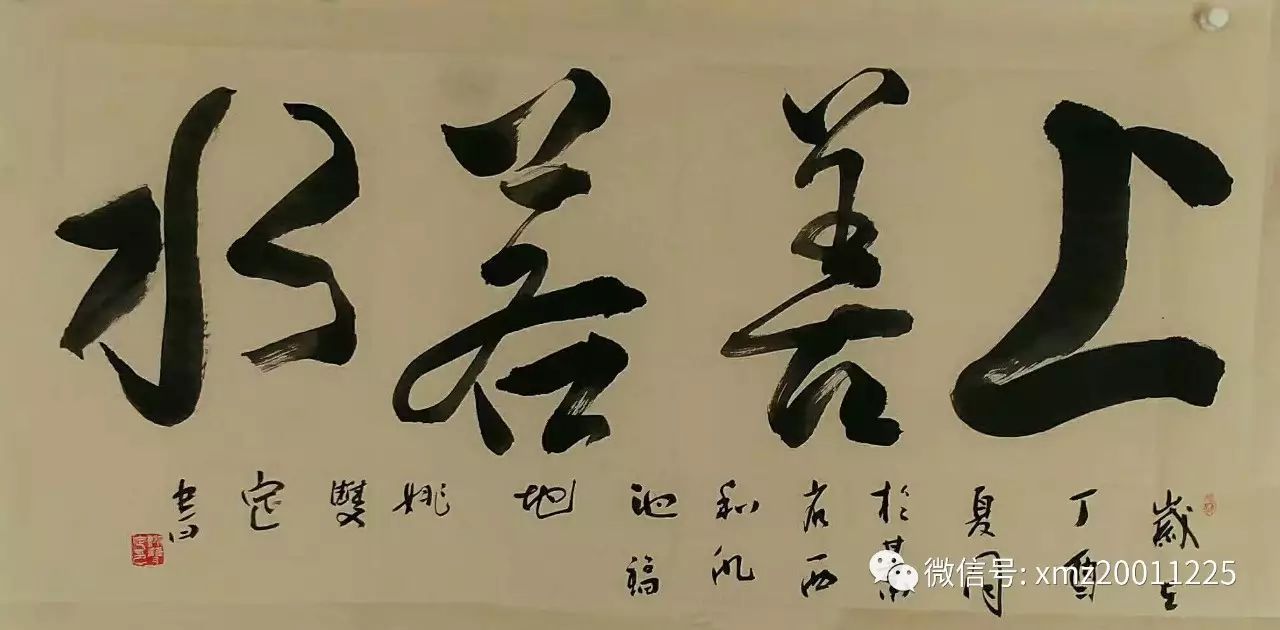 上善若水
歲在
丁酉
夏月
於
若西
和
池福
地
姚
雙
定
書
微信号: xmz20011225